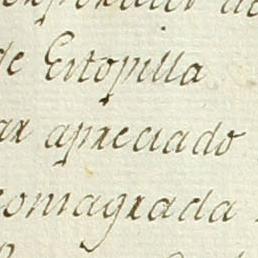 de Estopilla
ar apreciado
comagrada